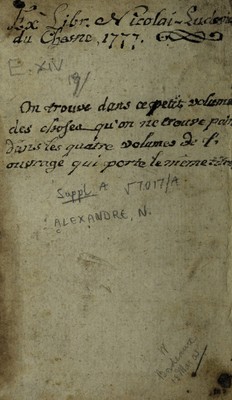 Ex Libr. Nicolai-Ludov
du Chasne, 1777.
E. XIV
19/
On trouve dans ce petit volume
des choses qu'on ne trouve poin
dans les quatre volumes de l'
ouvrage qui porte le même titre
Suppl. A 57017/A
ALEXANDRE, N.